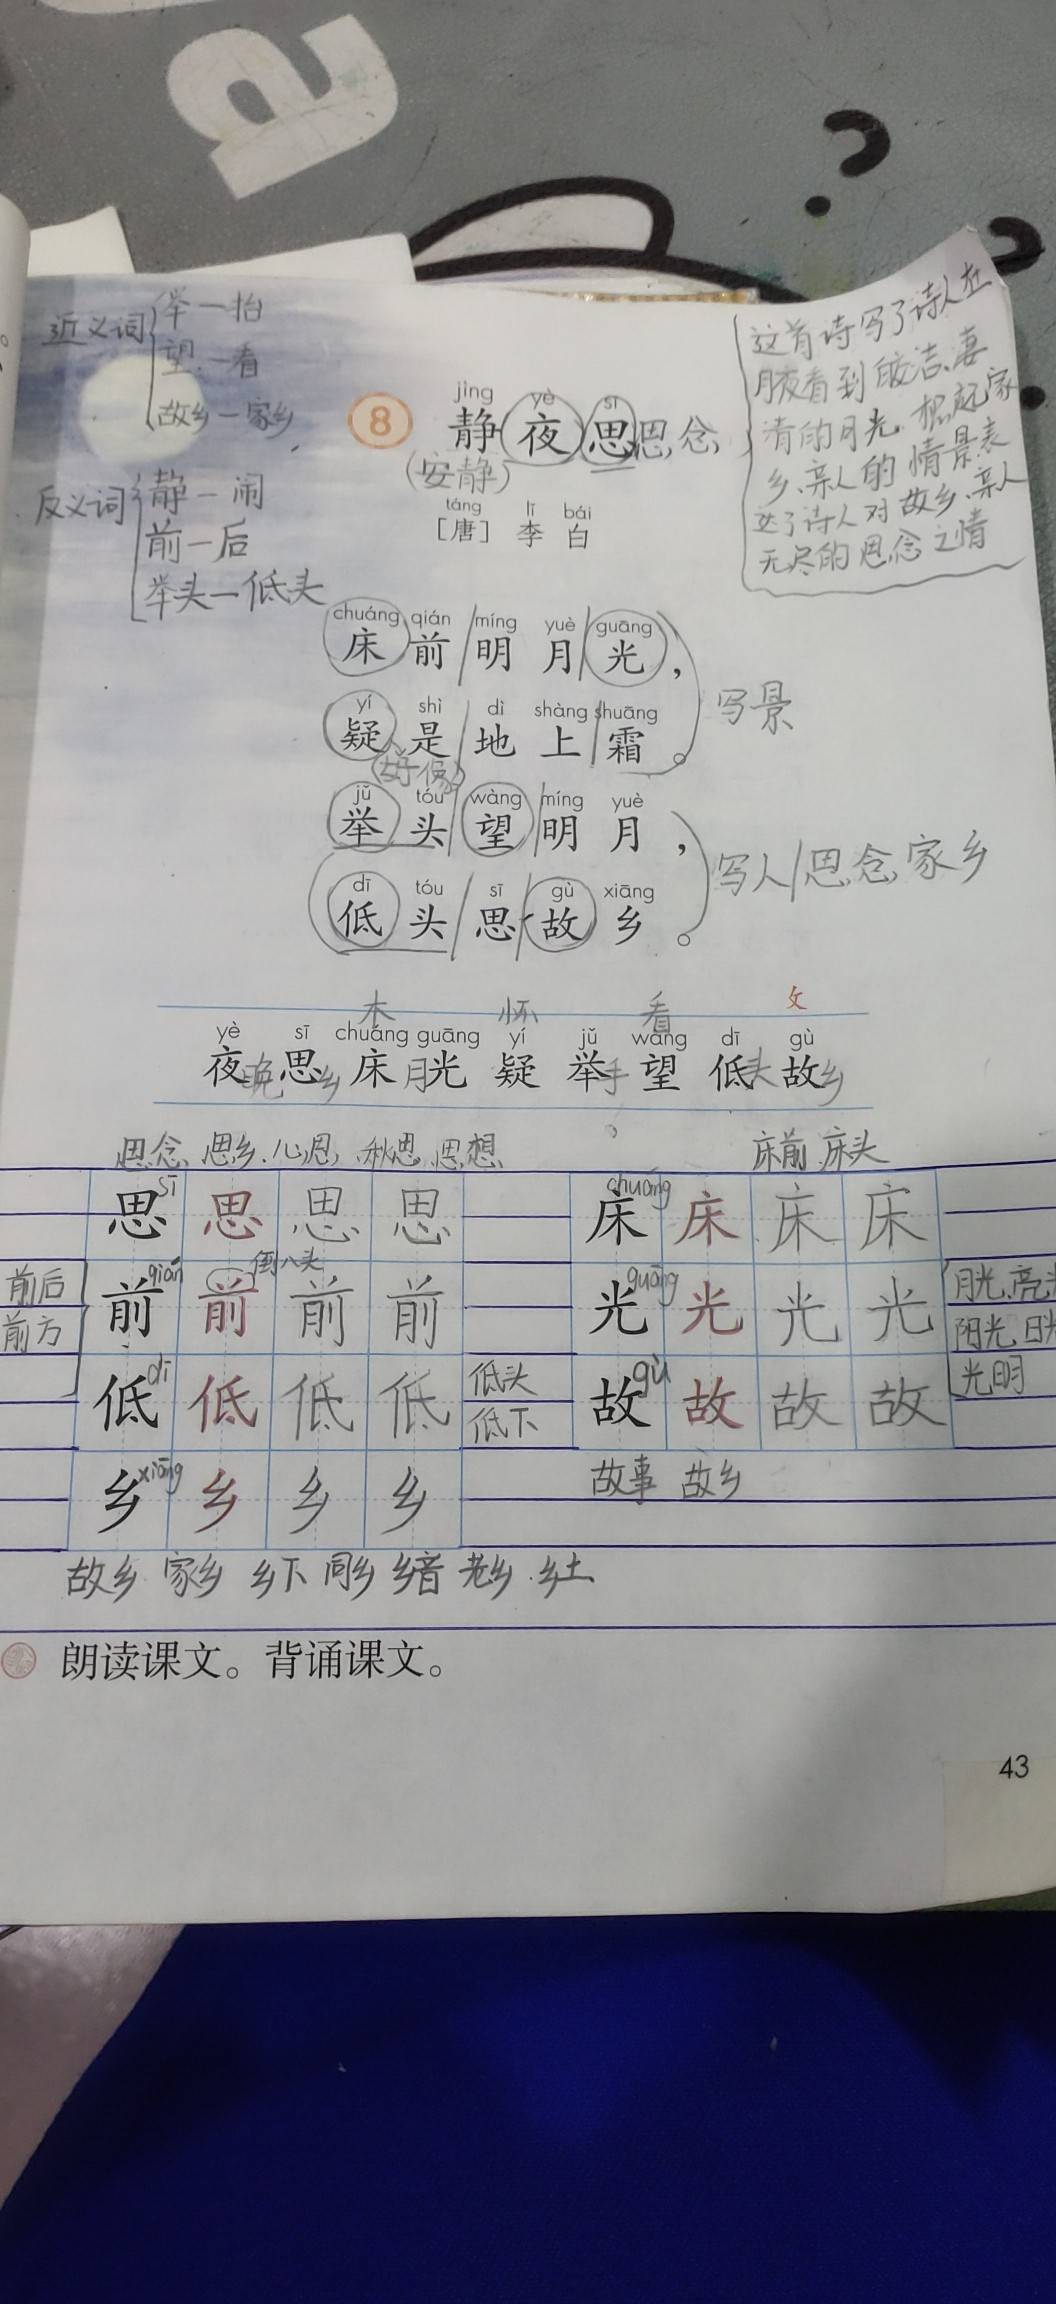 近义词
举一抬
望一看
故乡一家乡
反义词
静一闹
前一后
举头一低头
jìng yè sī
8 静夜思 思念
(安静)
táng lǐ bái
[唐] 李白
这首诗写了诗人在
月夜看到皎洁、凄
清的月光,想起家
乡、亲人的情景表
达了诗人对故乡、亲人
无尽的思念之情
chuáng qián míng yuè guāng
床前/明月/光,
yí shì dì shàng shuāng
疑是/地上/霜。
写景
(好像)
jǔ tóu wàng míng yuè
举头/望/明月,
dī tóu sī gù xiāng
低头/思/故乡。
写人/思念家乡
木 怀 看 攵
yè sī chuáng guāng yí jǔ wàng dī gù
夜晚 思乡 床 月光 疑 举手 望 低头 故乡
思念 思乡、心思、秋思 思想
床前 床头
sī chuáng
思 思 思 思 床 床 床 床
qián 倒八头 guāng
前后
前方
前 前 前 前 光 光 光 光
月光、亮光
阳光 日光
光明
dī gù
低 低 低 低 故 故 故 故
低头
低下
xiāng
乡 乡 乡 乡
故事 故乡
故乡 家乡 乡下 同乡 乡音 老乡、乡土
朗读课文。背诵课文。
43